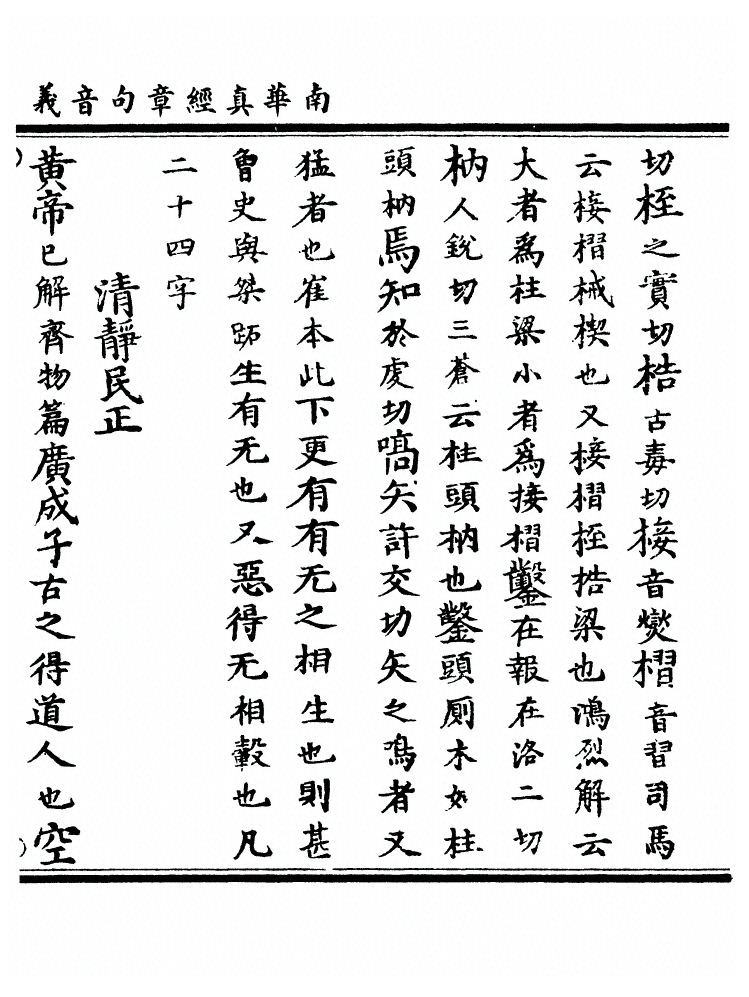 南華真經章句音義
切桎之實切梏古毒切椄音爕槢音習司馬
云椄槢械楔也又椄槢桎梏梁也鴻烈解云
大者爲柱梁小者爲接槢鑿在報在洛二切
枘人銳切三蒼云柱頭枘也鑿頭厠木如柱
頭枘焉知於虔切嚆矢許交切矢之鳴者又
猛者也崔本此下更有有无之相生也則甚
曾史與桀跖生有无也又惡得无相轂也凡
二十四字
清靜民正
黃帝已解齊物篇廣成子古之得道人也空